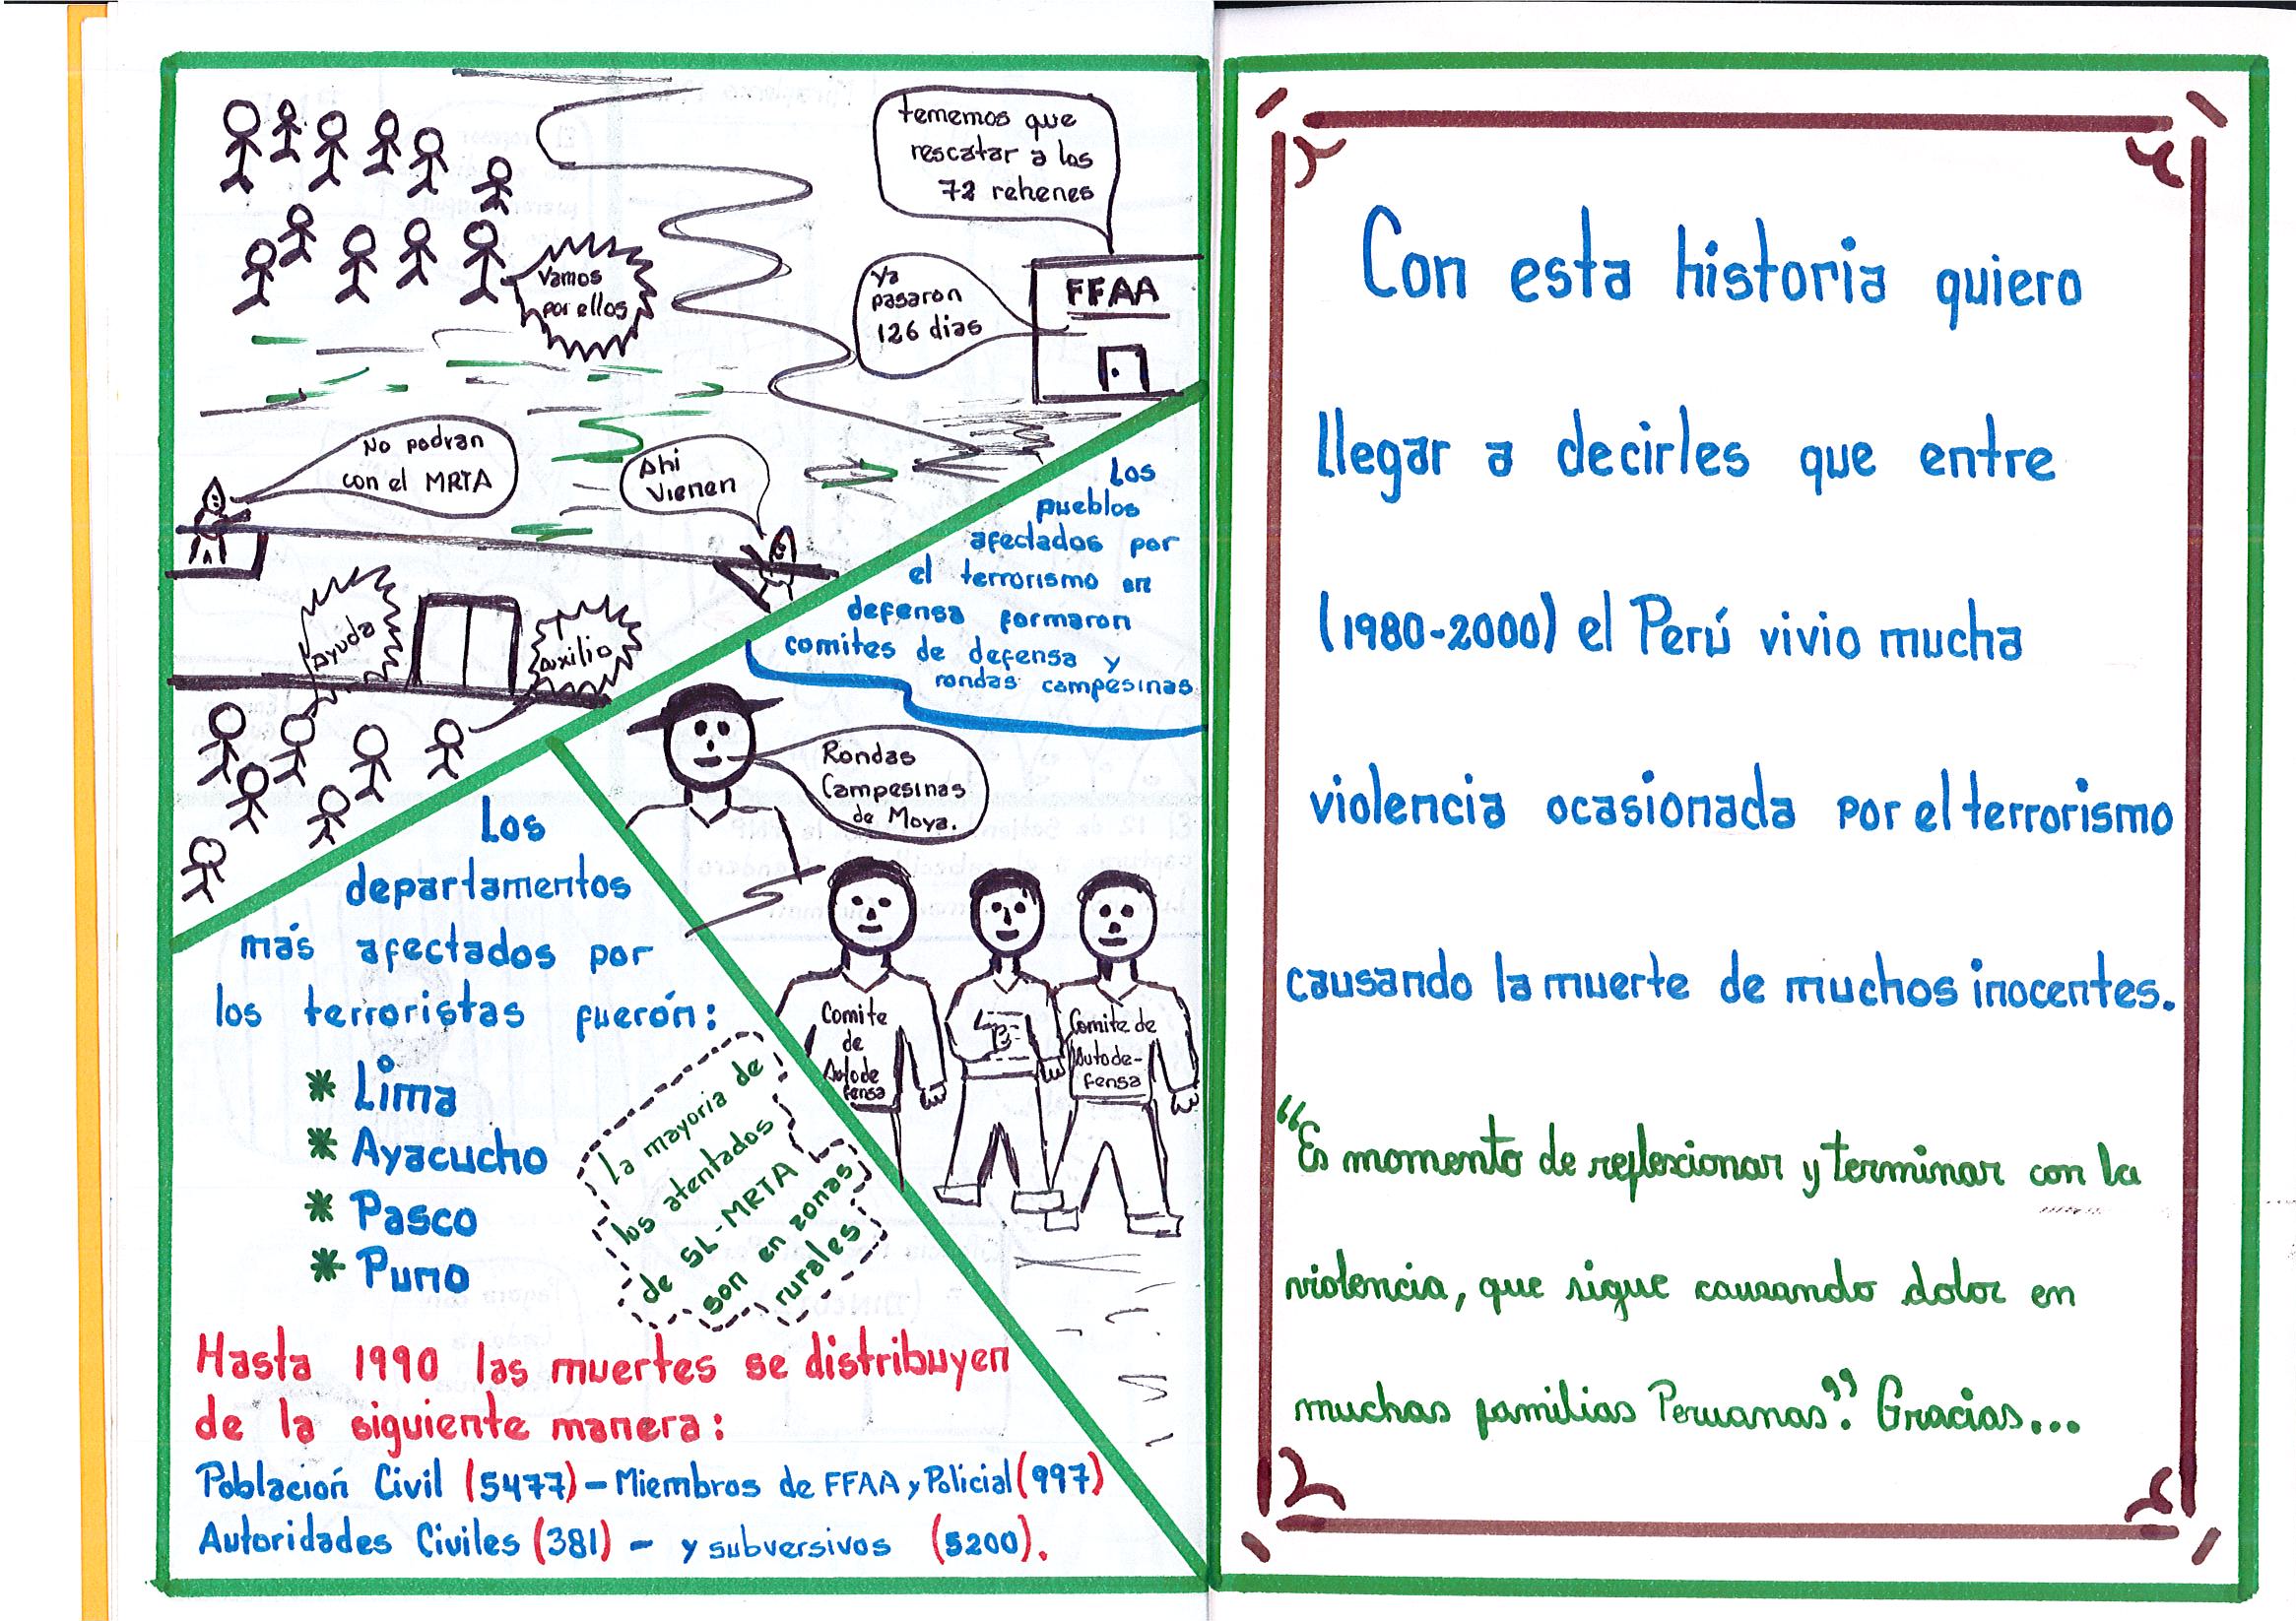 tememos que
rescatar a los
72 rehenes
FFAA
Ya
pasaron
126 dias
Vamos
por ellos
No podran
con el MRTA
Ahi
Vienen
ayuda
auxilio
Los
pueblos
afectados por
el terrorismo en
defensa formaron
comites de defensa y
rondas campesinas
Rondas
Campesinas
de Moya.
Comite
de
Autode
fensa
Comite de
Autode-
fensa
Los
departamentos
más afectados por
los terroristas fuerón:
* Lima
* Ayacucho
* Pasco
* Puno
la mayoria de
los atentados
de SL-MRTA
son en zonas
rurales
Hasta 1990 las muertes se distribuyen
de la siguiente manera:
Población Civil (5477) - Miembros de FFAA y Policial (997)
Autoridades Civiles (381) - y subversivos (5200).
Con esta historia quiero
llegar a decirles que entre
(1980-2000) el Perú vivio mucha
violencia ocasionada por el terrorismo
causando la muerte de muchos inocentes.
"Es momento de reflexionar y terminar con la
violencia, que sigue causando dolor en
muchas familias Peruanas". Gracias...